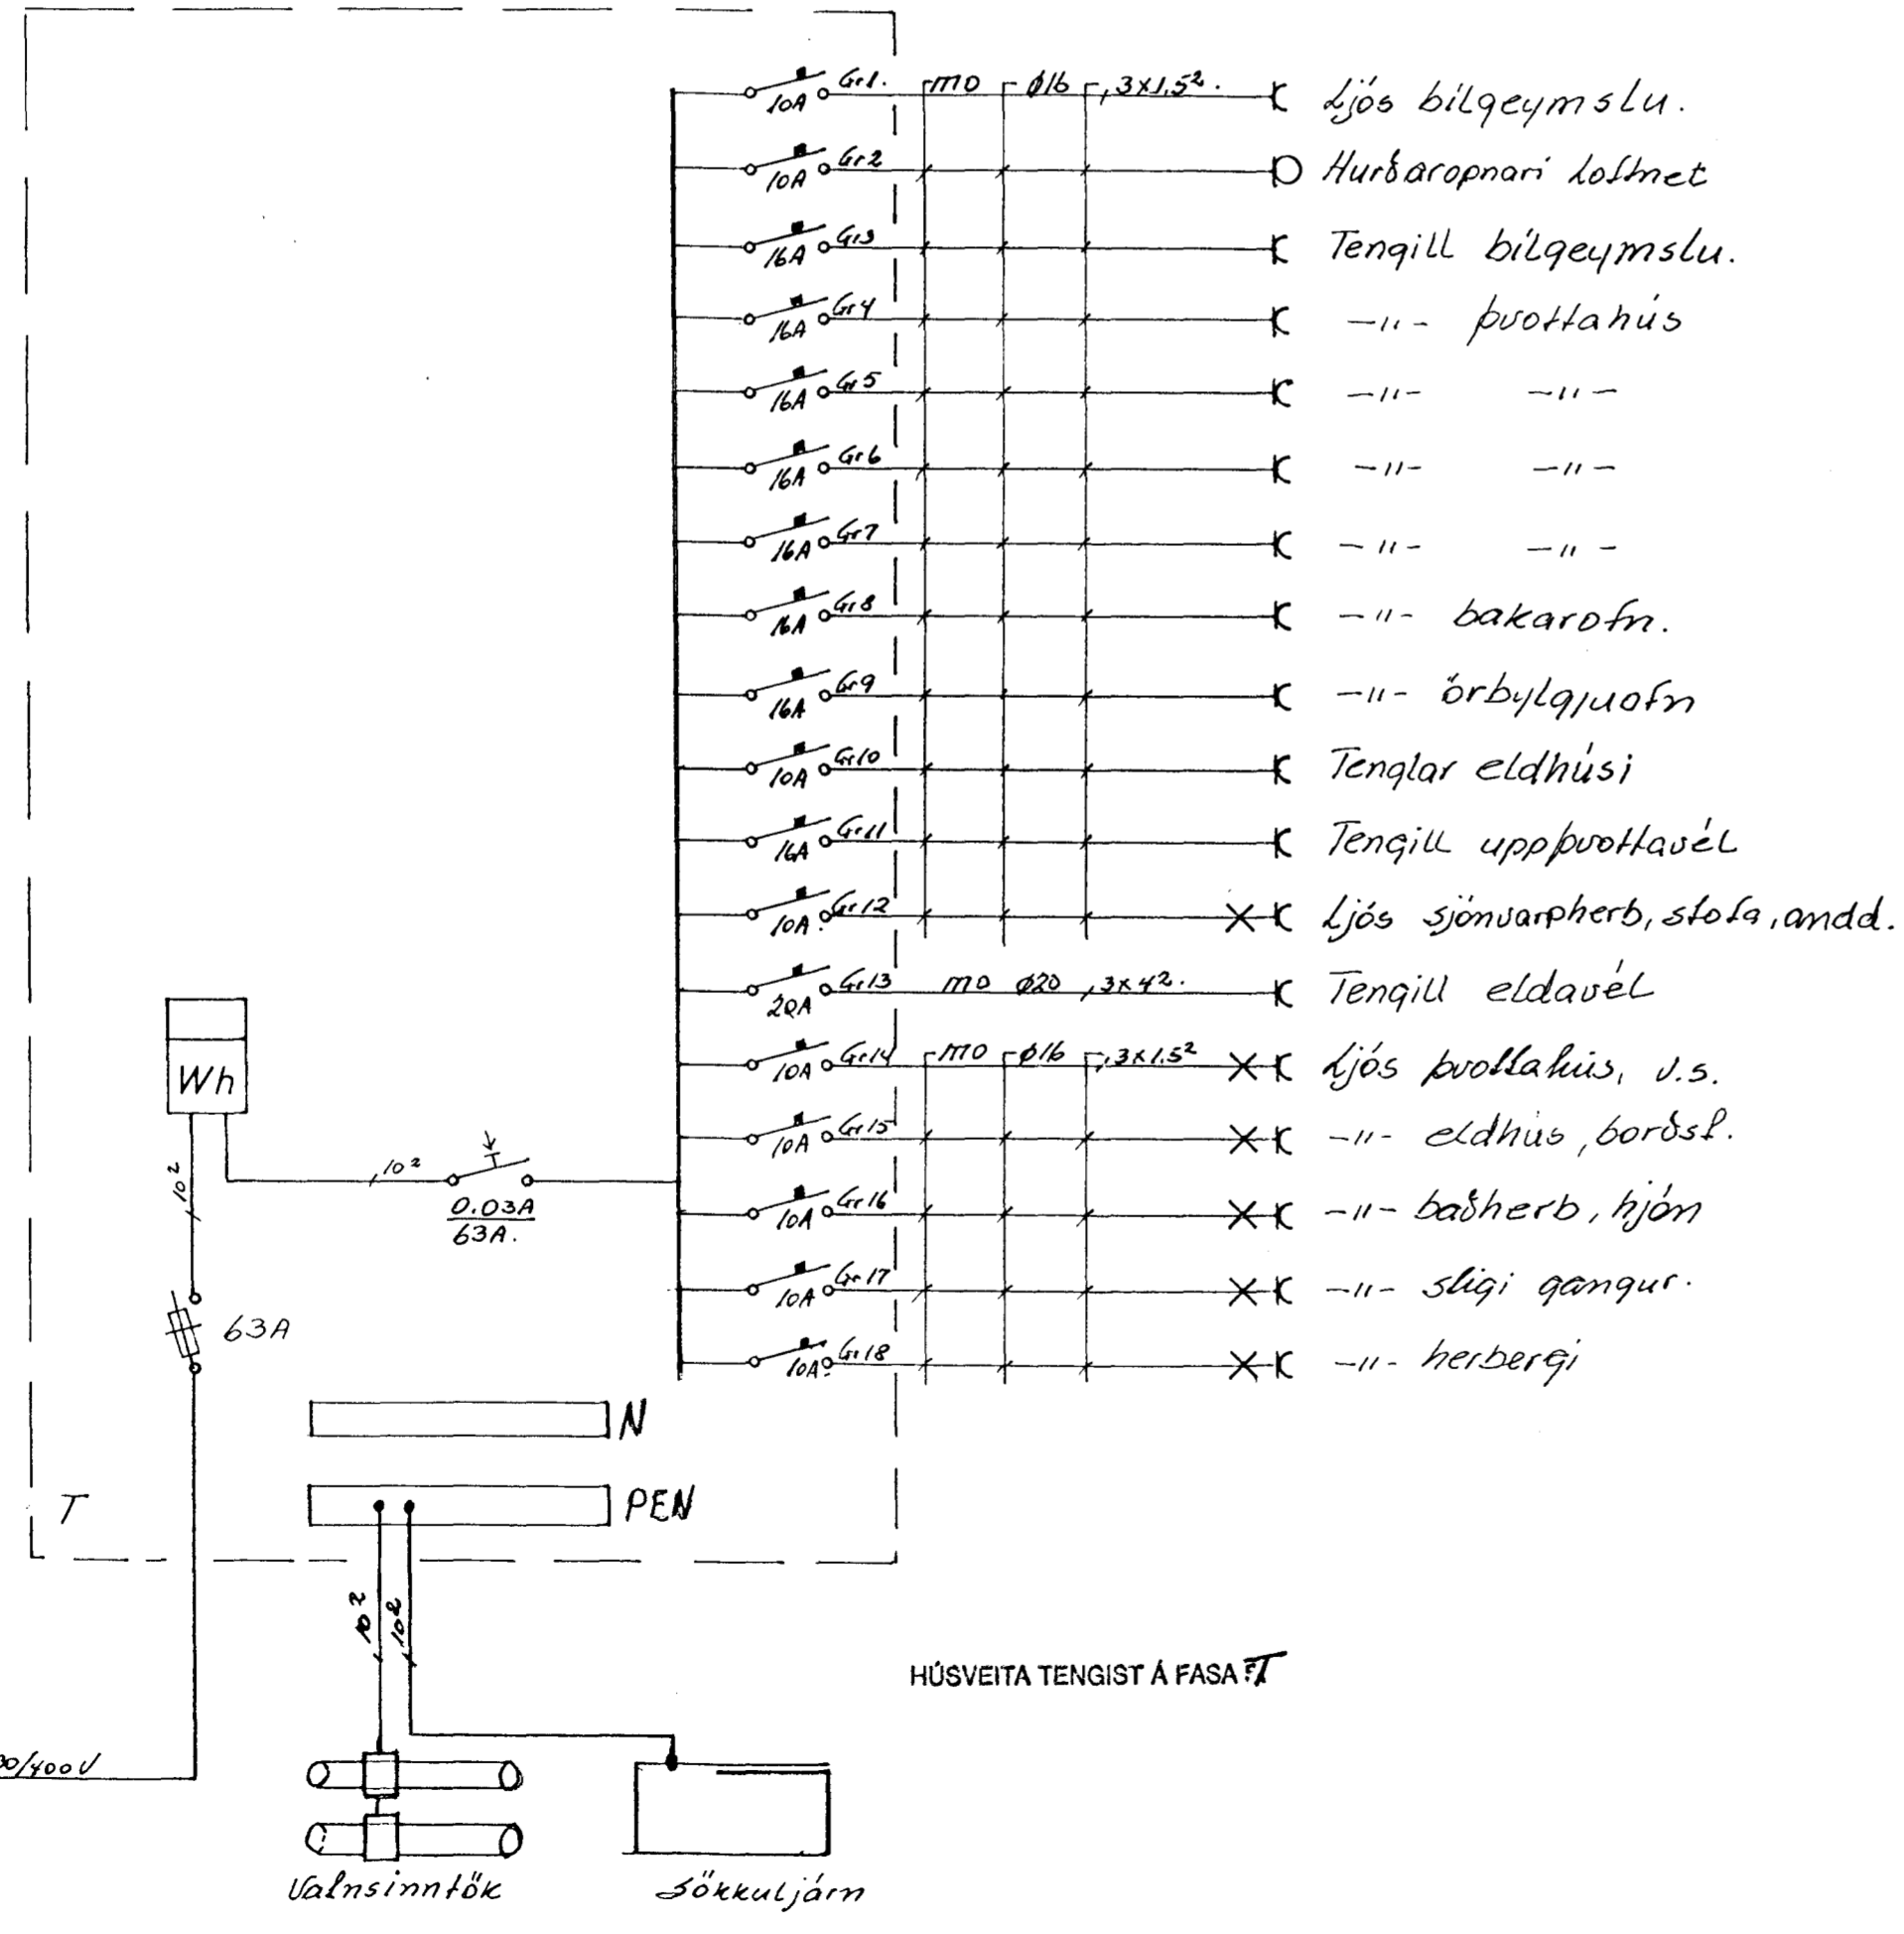 10A Gr1. mo ø16 3x1,5². Ljós bílgeymslu.
10A Gr2 Hurðaropnari loftnet
16A Gr3 Tengill bílgeymslu.
16A Gr4 -"- þvottahús
16A Gr5 -"- -"-
16A Gr6 -"- -"-
16A Gr7 -"- -"-
16A Gr8 -"- bakarofn.
16A Gr9 -"- örbylgjuofn
10A Gr10 Tenglar eldhúsi
16A Gr11 Tengill uppþvottavél
10A. Gr12 Ljós sjónvarpherb, stofa, andd.
20A Gr13 mo ø20 ,3x4². Tengill eldavél
10A Gr14 mo ø16 ,3x1.5² Ljós þvottahús, v.s.
10A Gr15 -"- eldhús, borðst.
10A Gr16 -"- baðherb, hjón
10A Gr17 -"- stigi gangur.
10A. Gr18 -"- herbergi
Wh
10²
10²
0.03A
63A.
63A
N
PEN
T
10²
10²
HÚSVEITA TENGIST Á FASA T
/400V
Vatnsinntök
Sökkuljárn